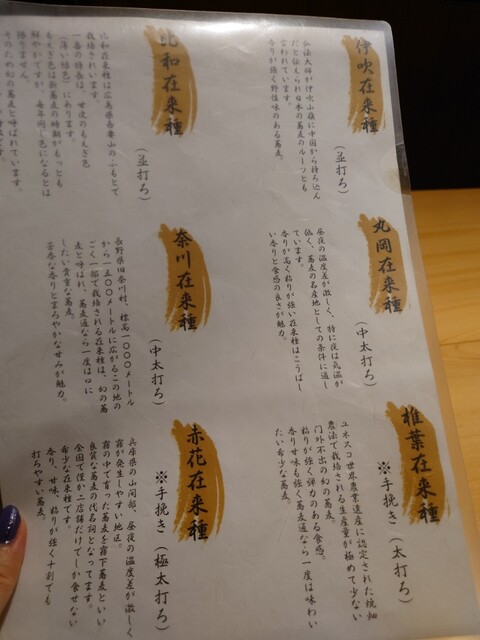 伊吹在来種
（並打ち）
弘法大師が伊吹山嶺に中国から持ち込ん
だと伝えられ日本の蕎麦のルーツとも
言われています。
香りが強く野性味のある蕎麦。
比和在来種
（並打ち）
比和在来種は広島県吾妻山のふもとで
栽培されています。
一番の特長は、甘皮のもえぎ色
（薄い緑色）にあります。
もえぎ色は新蕎麦の時期がもっとも
鮮やかですが、毎年同じ色になるとは
限りません。
そのため幻の蕎麦と呼ばれています。
丸岡在来種
（中太打ち）
昼夜の温度差が激しく、特に夜は気温が
低く、蕎麦の名産地としての条件に適し
ています。
香りが高く粘りが強い在来種はこうばし
い香りと食感の良さが魅力。
奈川在来種
（中太打ち）
長野県旧奈川村、標高１０００メートル
から１５００メートルに広がるこの地の
ごく一部で栽培される在来種は、幻の蕎
麦と呼ばれ、蕎麦通なら一度は口に
したい貴重な蕎麦。
芳香な香りとまろやかな甘みが魅力。
椎葉在来種
※手挽き（太打ち）
ユネスコ世界農業遺産に認定された焼畑
農法で栽培される生産量が極めて少ない
門外不出の幻の蕎麦。
粘りが強く弾力のある食感、
香り甘味も強く蕎麦通なら一度は味わい
たい希少な蕎麦。
赤花在来種
※手挽き（極太打ち）
兵庫県の山間部、昼夜の温度差が激しく
霧が発生しやすい地区。
霧の中で育った蕎麦を霧下蕎麦といい
良質な蕎麦の代名詞となってます。
全国で僅か二店舗だけでしか食せない
希少な在来種です。
香り、甘味、粘りが強く十割でも
打ちやすい蕎麦。